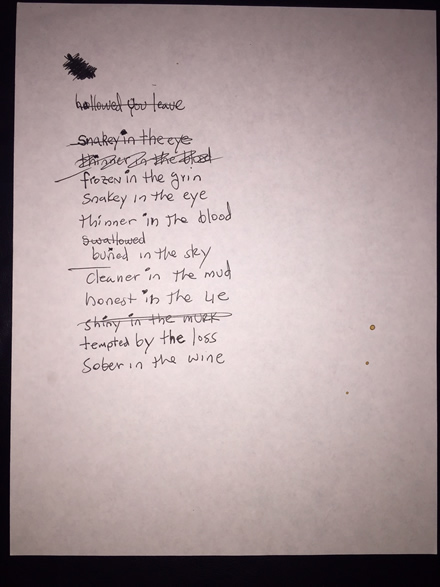 hollowed you leave
Snakey in the eye
thinner in the blood
frozen in the grin
Snakey in the eye
thinner in the blood
swallowed
buried in the sky
Cleaner in the mud
honest in the lie
shiny in the murk
tempted by the loss
Sober in the wine